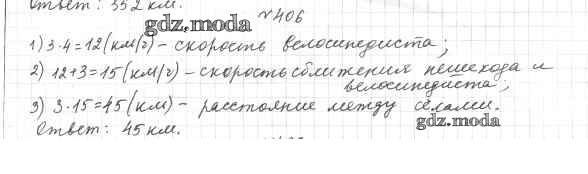 Ответ: 352 км.
gdz.moda
№406
1) 3·4=12(км/ч) - скорость велосипедиста;
2) 12+3=15(км/ч) - скорость сближения пешехода и
велосипедиста;
3) 3·15=45(км) - расстояние между сёлами.
Ответ: 45 км.
gdz.moda